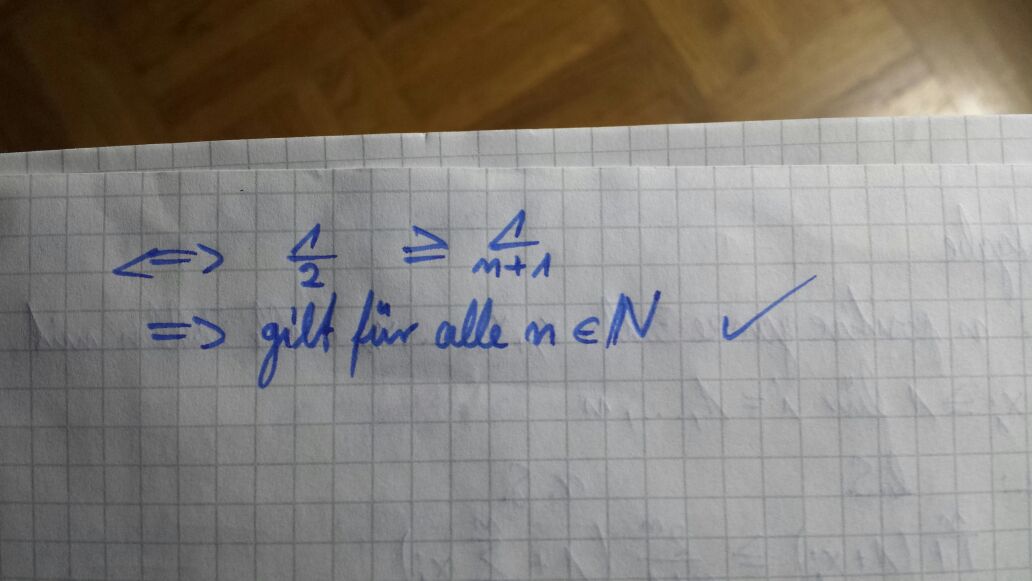 <=> 1/2 ≥ 1/n+1
=> gilt für alle n ∈ N ✓